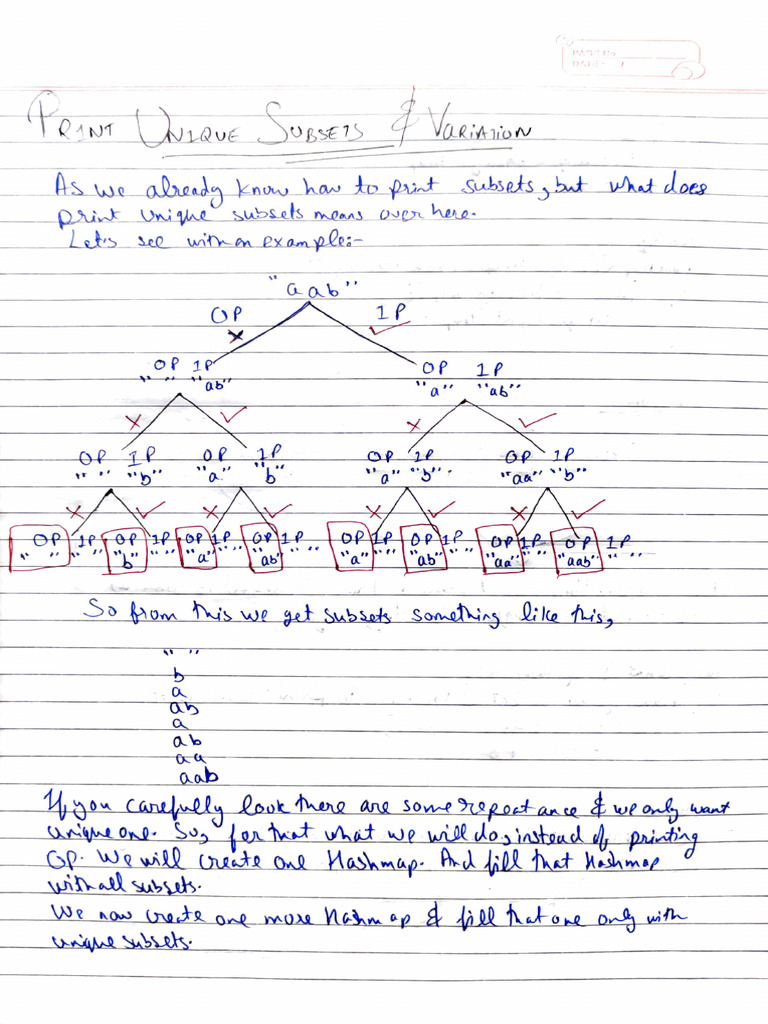 PRINT UNIQUE SUBSETS & VARIATION
As we already know how to print subsets, but what does
print unique subsets means over here.
Let's see with an example:-
"aab"
OP IP
OP IP OP IP
" " "ab" "a" "ab"
OP IP OP IP OP IP OP IP
" " "b" "a" "b" "a" "b" "aa" "b"
OP IP OP IP OP IP OP IP OP IP OP IP OP IP OP IP
" " " " "b" " " "a" " " "ab" " " "a" " " "ab" " " "aa" " " "aab" " "
So from this we get subsets something like this,
" "
b
a
ab
a
ab
aa
aab
If you carefully look there are some repeatance & we only want
unique one. So, for that what we will do, instead of printing
OP. We will create one Hashmap. And fill that Hashmap
with all subsets.
We now create one more Hashmap & fill that one only with
unique subsets.